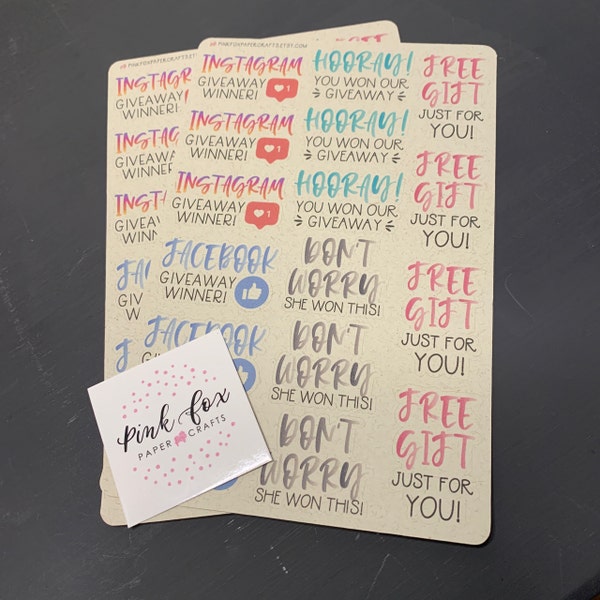 PINKFOXPAPERCRAFTS.ETSY.COM
INSTAGRAM
GIVEAWAY
WINNER!
1
HOORAY!
YOU WON OUR
GIVEAWAY
FREE
GIFT
JUST FOR
YOU!
INSTAGRAM
GIVEAWAY
WINNER!
1
HOORAY!
YOU WON OUR
GIVEAWAY
FREE
GIFT
JUST FOR
YOU!
INSTAGRAM
GIVEAWAY
WINNER!
1
HOORAY!
YOU WON OUR
GIVEAWAY
FACEBOOK
GIVEAWAY
WINNER!
DON'T
WORRY
SHE WON THIS!
FREE
GIFT
JUST FOR
YOU!
FACEBOOK
DON'T
WORRY
SHE WON THIS!
FREE
GIFT
JUST FOR
YOU!
DON'T
WORRY
SHE WON THIS!
INSTAGR
GIVEAWAY
WINNER!
INSTA
GIVEAWAY
WINNER!
INSTA
GIVEAW
WINN
FA
GIVE
WI
Pink Fox
PAPER CRAFTS